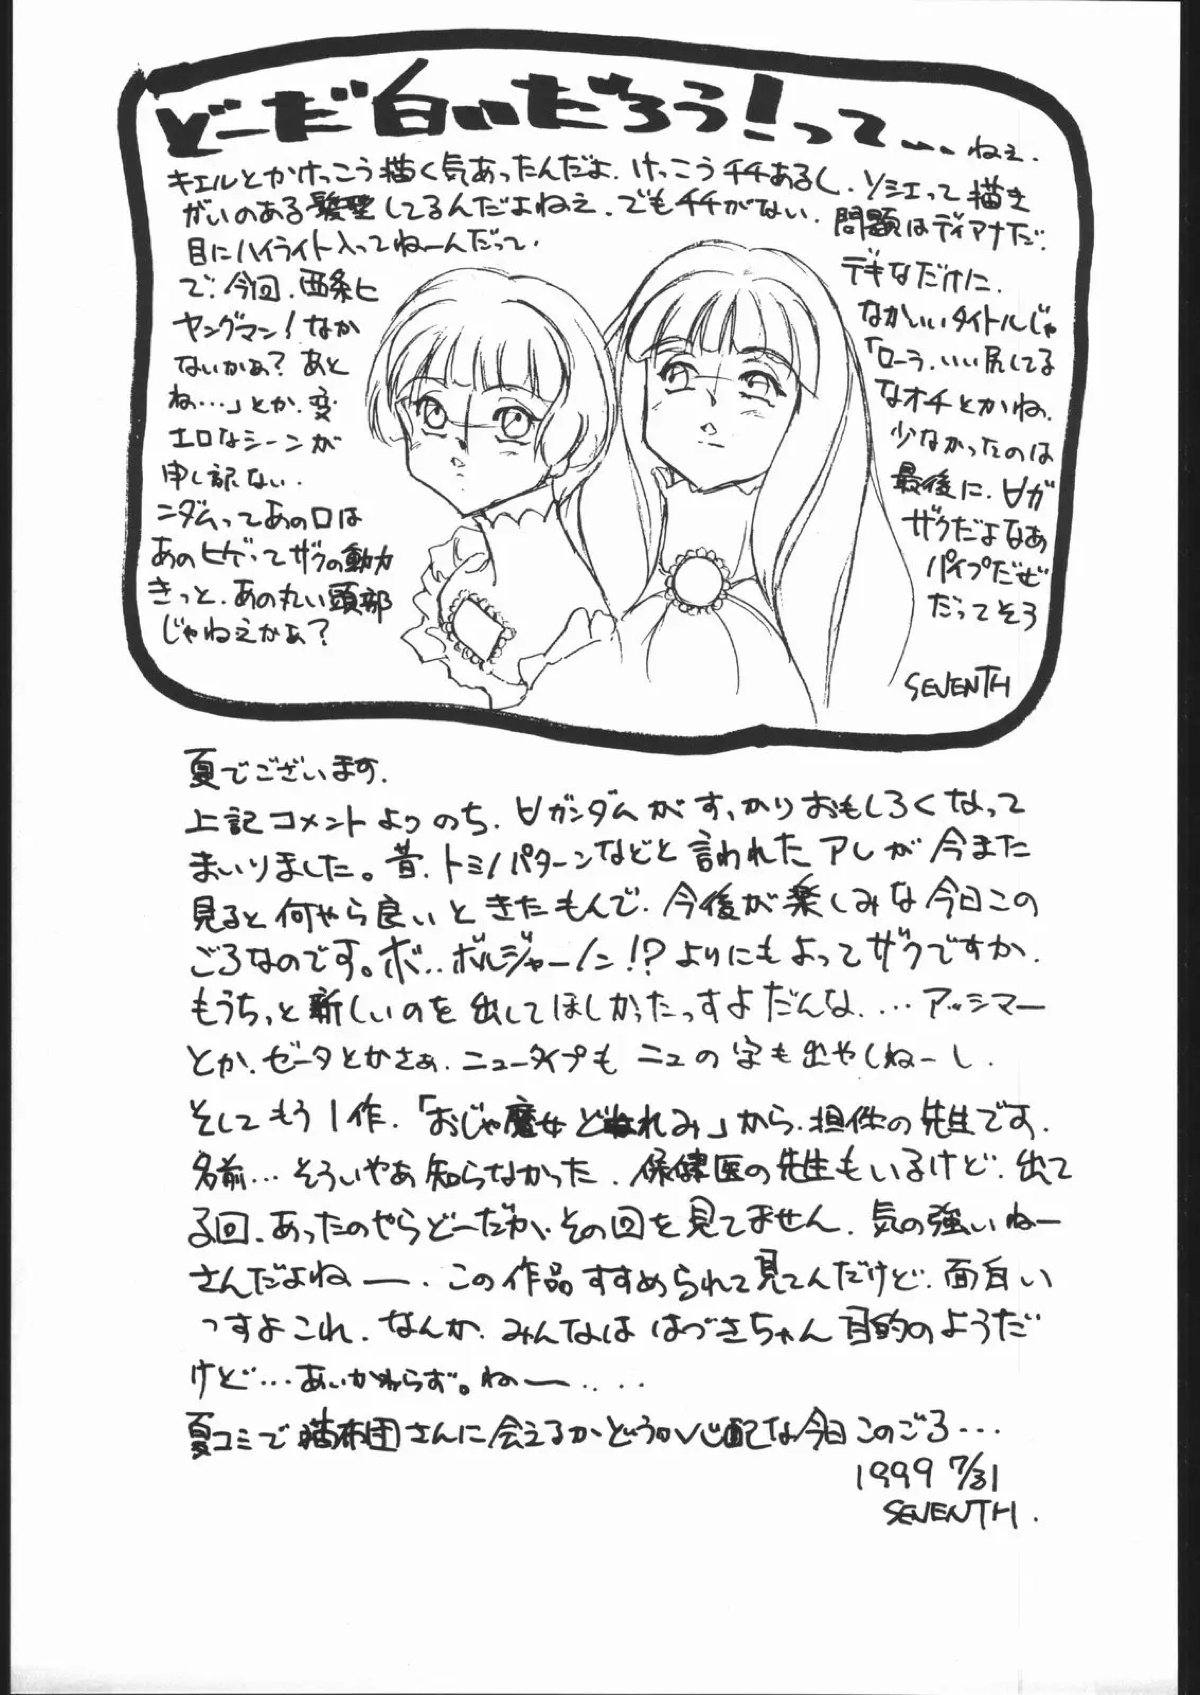 どーだ白いだろう!って... ねぇ.
キエルとかけっこう描く気あったんだよ. けっこうチチあるし. ソシエって描き
がいのある髪型してるんだよねえ. でもチチがない. 問題はディアナだ.
目にハイライト入ってねーんだって.
で. 今回. 西条ヒ
ヤングマン!なか
ないかぁ? あと
ね...」とか. 変
エロなシーンが
申し訳ない.
ニダムってあの口は
あのヒゲってザクの動力
きっと. あの丸い頭部
じゃねえかぁ?
デキなだけに.
なかいいタイトルじゃ
「ローラ. いい尻してる
なオチとかね.
少なかったのは
最後に. ∀ガ
ザクだよなあ
パイプだぜ
だってそろ
SEVENTH
夏でございます.
上記コメントよりのち. ∀ガンダムがすっかりおもしろくなって
まいりました。昔. トミノパターンなどと言われたアレが今また
見ると何やら良いときたもんで. 今後が楽しみな今日この
ごろなのです。ボ..ボルジャーノン!? よりにもよってザクですか.
もうちっと新しいのを出してほしかったっすよだんな.... アッシマー
とか. ゼータとかさぁ. ニュータイプもニュの字も出やしねーし.
そしてもう1作.「おじゃ魔女どれみ」から. 担任の先生です.
名前... そういやあ知らなかった. 保健医の先生もいるけど. 出て
る回. あったのやらどーだか. その回を見てません. 気の強いねー
さんだよねー. この作品すすめられて見てんだけど. 面白い
っすよこれ. なんか. みんなははづきちゃん目的のようだ
けど... あいかわらず。ねー....
夏コミで猫布団さんに会えるかどうか心配な今日このごろ...
1999 7/31
SEVENTH.